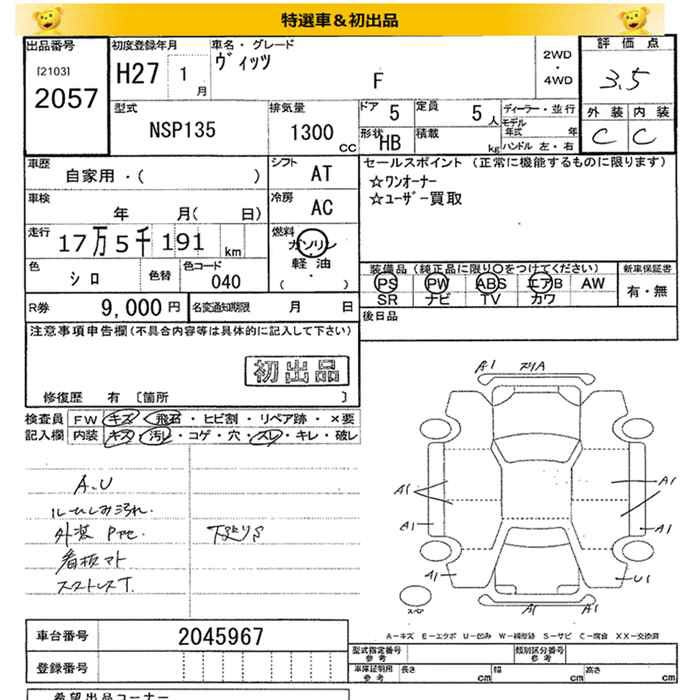 特選車＆初出品
出品番号 初度登録年月 車名・グレード 2WD・4WD 評価点
[2103] 2057 H27 1月 ヴィッツ F 3.5
型式 NSP135 排気量 1300 CC ドア 5 定員 5人 ディーラー・並行 外装 内装
形状 HB 積載 kg モデル年式 年 C C
ハンドル 左・右
車歴 自家用・( ) シフト AT セールスポイント (正常に機能するものに限ります)
車検 年 月( 日) 冷房 AC ☆ワンオーナー
☆ユーザー買取
走行 17万5千191km 燃料 ガソリン・軽油・( )
色 シロ 色替 色コード 040 装備品 (純正品に限り○をつけてください) 新車保証書
PS PW ABS エアB AW 有・無
SR ナビ TV カワ
R券 9,000円 名変通知期限 月 日 後日品
注意事項申告欄(不具合内容等は具体的に記入して下さい)
初出品
修復歴 有 [箇所 ]
検査員 FW キズ・飛石・ヒビ割・リペア跡・×要
記入欄 内装 キズ・汚レ・コゲ・穴・スレ・キレ・破レ
A.U
ルームしみ汚れ.
外装
看板マト
スタトレスT.
下廻りS
A1 スリA
A1 A1
A1 A1
A1 U1
スペア A1 A1
A－キズ E－エクボ U－凹み W－補修跡 S－サビ C－腐食 XX－交換済
車台番号 2045967
登録番号
型式指定番号 参考 類別区分番号 参考
車庫証明用 参考 長さ cm 幅 cm 高さ cm
希望出品コーナー